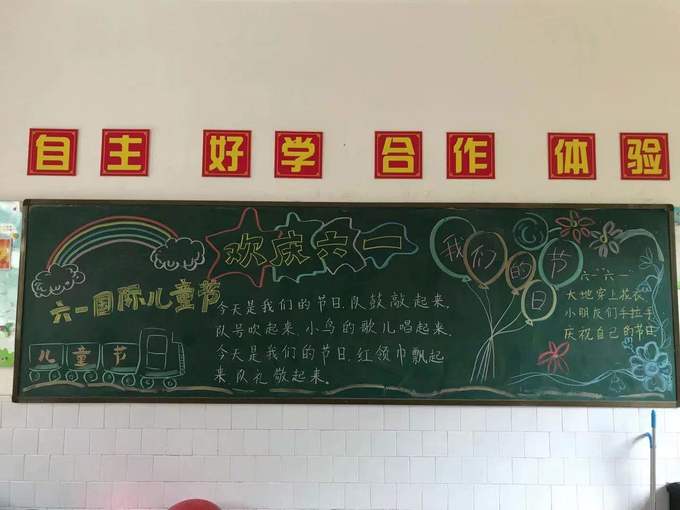 自主 好学 合作 体验
欢庆六一
六一国际儿童节
儿童节
今天是我们的节日,队鼓敲起来,
队号吹起来,小鸟的歌儿唱起来.
今天是我们的节日,红领巾飘起
来,队礼敬起来.
我们的节日
六一
大地穿上花衣
小朋友们手拉手
庆祝自己的节日